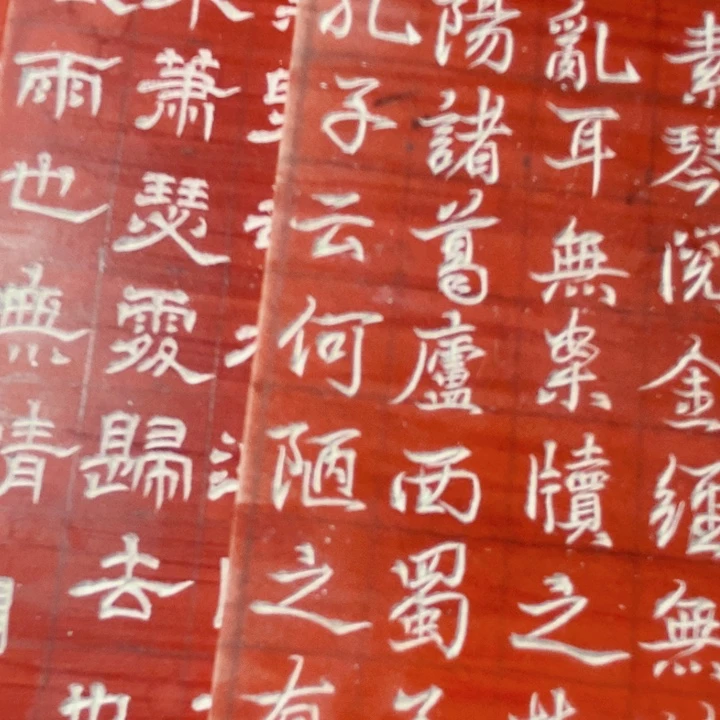 素琴閱金經無
亂耳無案牘之
陽諸葛廬西蜀子
孔子云何陋之有
蕭瑟處歸去也
雨也無晴